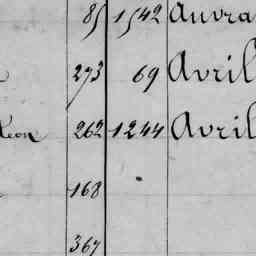 85 1542 Auvra
273 69 Avril
Léon 262 1244 Avril
168
367